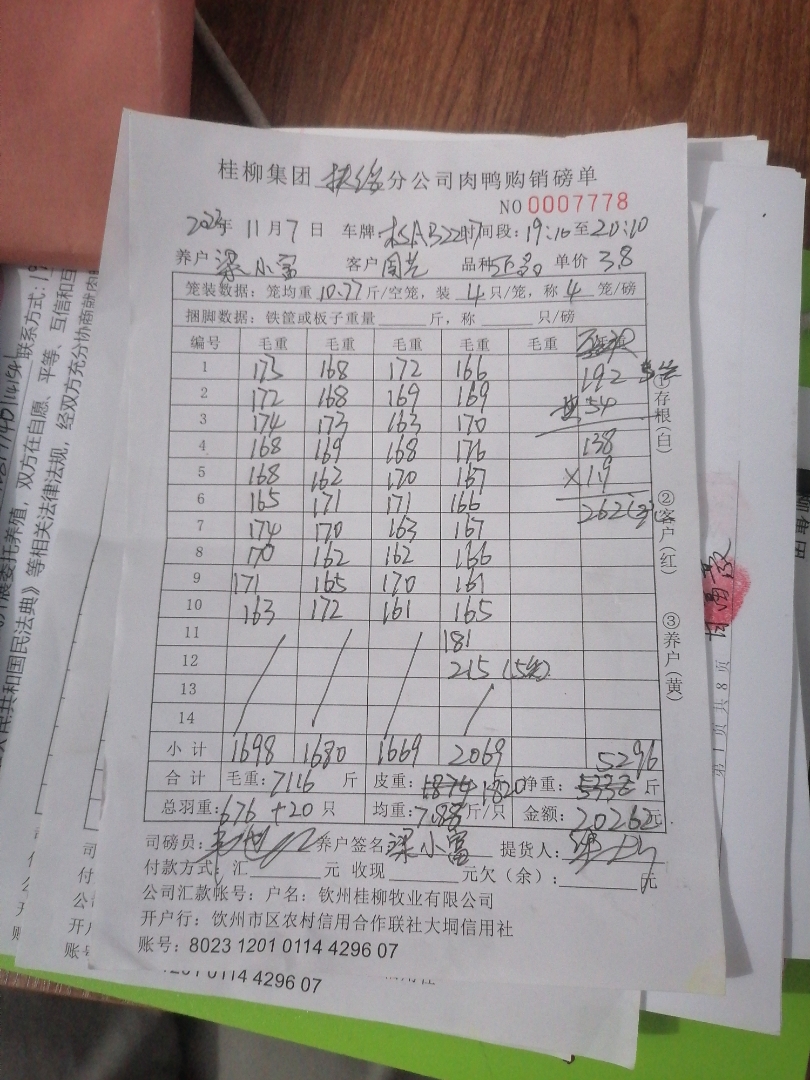 桂柳集团扶绥分公司肉鸭购销磅单
NO 0007778
2023年 11月7日 车牌: 时间段:19:10至20:10
养户 梁小富 客户 周芒 品种 单价 3.8
笼装数据:笼均重10.77斤/空笼,装4只/笼,称4笼/磅
捆脚数据:铁筐或板子重量 斤,称 只/磅
编号 毛重 毛重 毛重 毛重 毛重
1 173 168 172 166 192
2 172 168 169 169 54
3 174 173 163 170
4 168 169 168 176 138
5 168 162 170 167 ×1.9
6 165 171 171 166 262
7 174 170 163 167
8 170 162 162 166
9 171 165 170 161
10 163 172 161 165
11 181
12 215
13
14
小计 1698 1680 1669 2069 5296
合计 毛重:7116 斤 皮重: 1820 净重: 斤
总羽重:676+20 只 均重: 斤/只 金额:20262元
司磅员: 养户签名 梁小富 提货人:
付款方式:汇 元 收现 元欠(余): 元
公司汇款帐号:户名:钦州桂柳牧业有限公司
开户行:饮州市区农村信用合作联社大垌信用社
账号:8023 1201 0114 4296 07
①存根(白)
②客户(红)
③养户(黄)
联系方式:
展委托养殖,双方在自愿、平等、互信和互
民共和国民法典》等相关法律法规,经双方充分协商就
第1页共8页
账号
1201 0114 4296 07